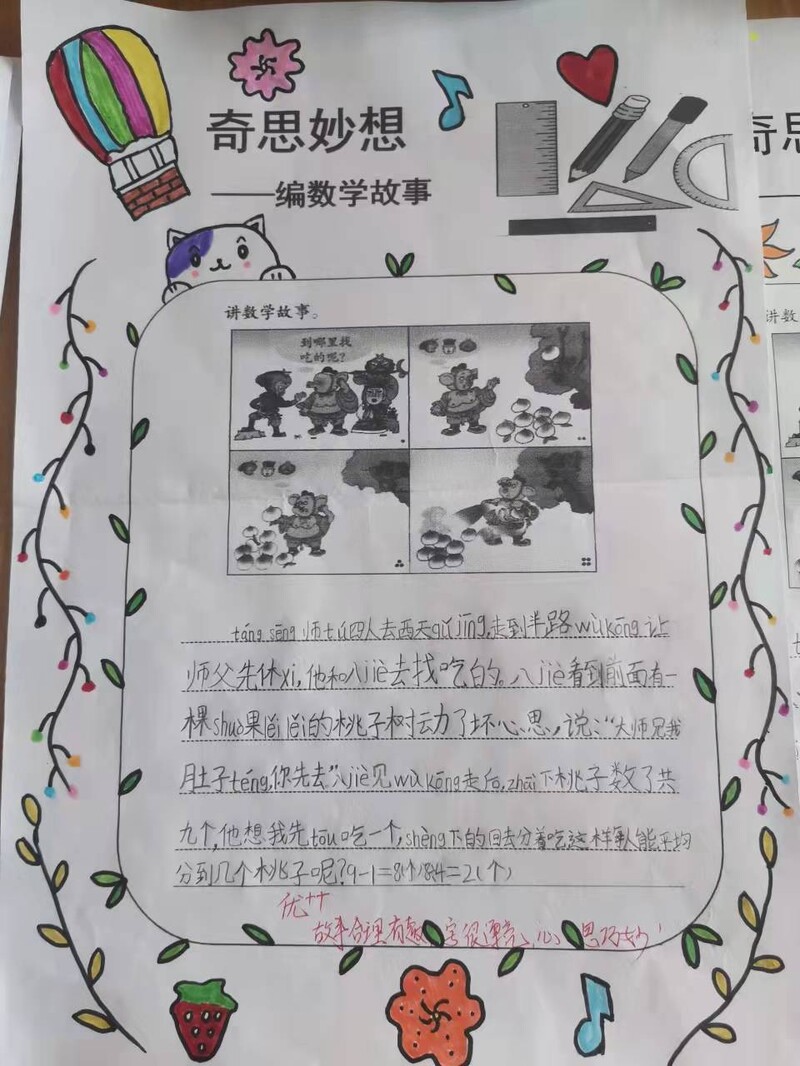 奇思妙想
——编数学故事
讲数学故事。
到哪里找
吃的呢?
táng sēng 师tú四人去西天qǔ jīng,走到半路wù kōng让
师父先休xi,他和八jiè去找吃的。八jiè看到前面有一
棵shuò果lěi lěi的桃子树动了坏心思,说:“大师兄我
肚子téng,你先去”八jiè见wù kōng走后,zhāi下桃子数了共
九个,他想我先tōu吃一个,shèng下的回去分着吃这样每人能平均
分到几个桃子呢?9-1=8(个)8÷4=2(个)
优++
故事合理有趣,字很漂亮,心思巧妙!
奇思
讲数